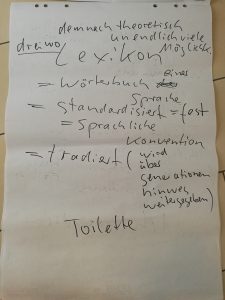 demnach theoretisch
unendlich viele
Möglichk.
Lexikon
= Wörterbuch eines
Sprache
= Standardisiert = fest
= Sprachliche
Konvention
= tradiert (wird
über
generationen
hinweg
weitergegeben)
Toilette